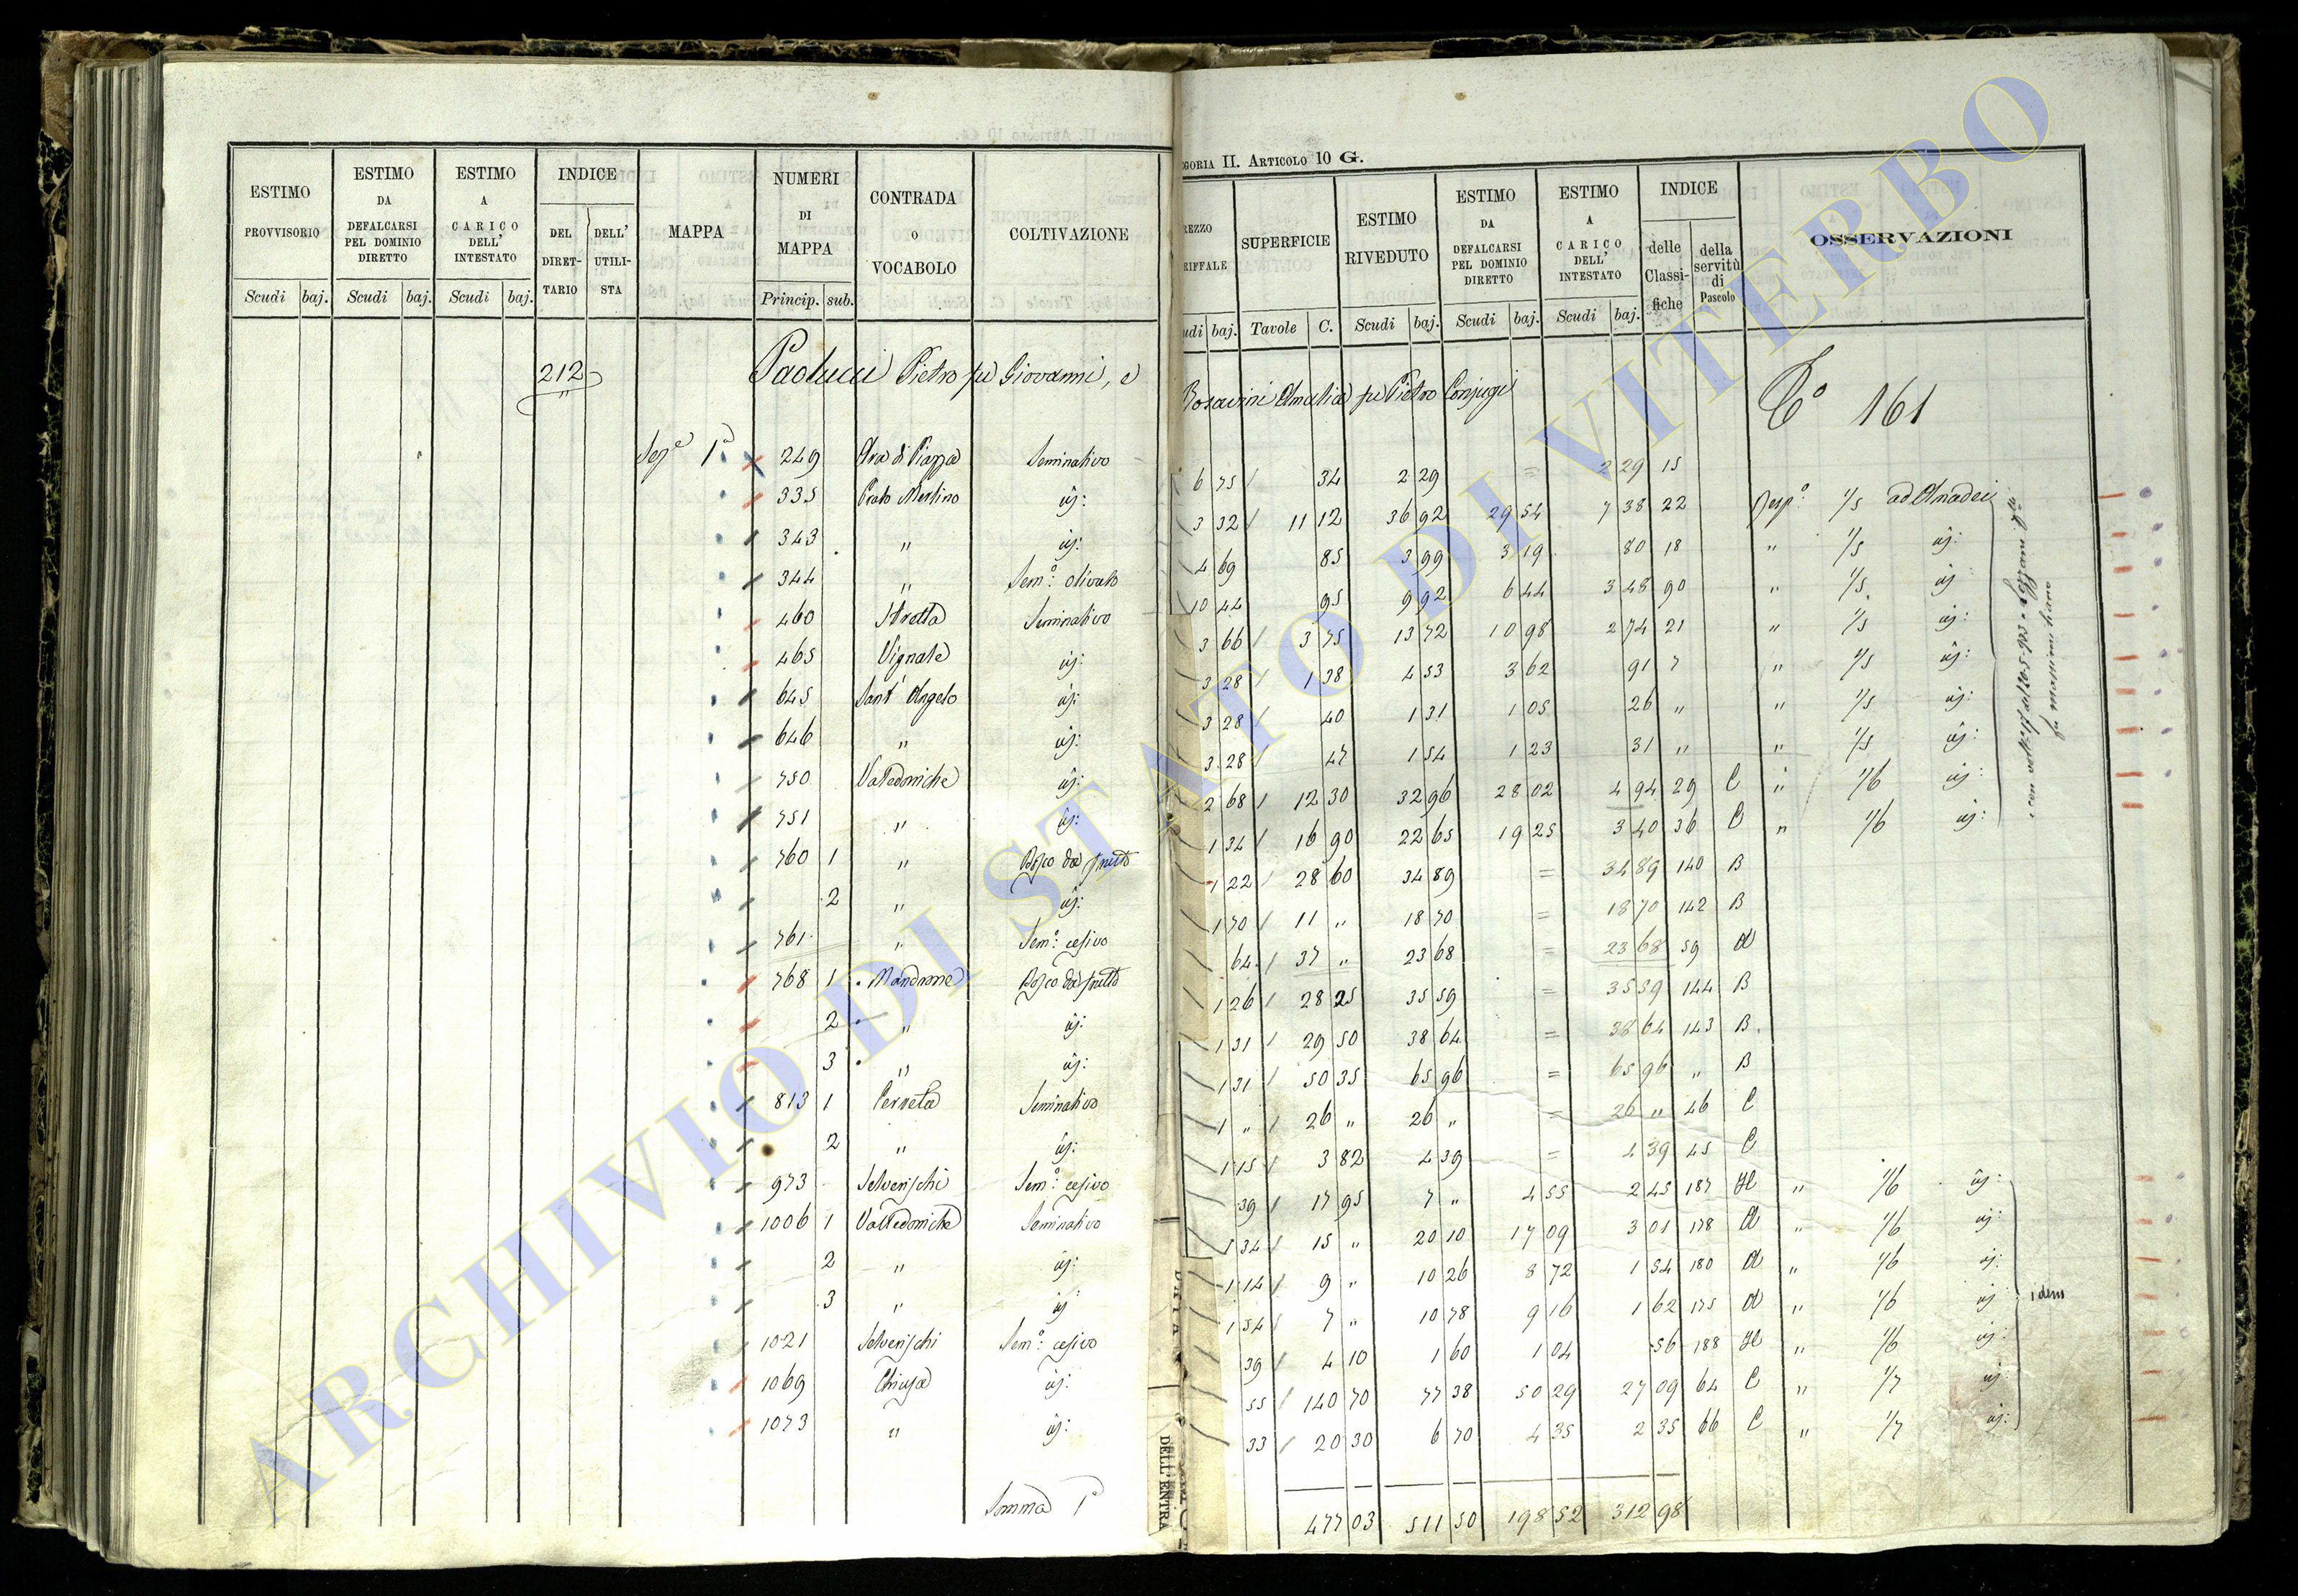 EGORIA II. ARTICOLO 10 G.
ESTIMO PROVVISORIO Scudi baj. ESTIMO DA DEFALCARSI PEL DOMINIO DIRETTO Scudi baj. ESTIMO A CARICO DELL' INTESTATO Scudi baj. INDICE DEL DIRETTARIO DELL' UTILISTA MAPPA NUMERI DI MAPPA Princip. sub. CONTRADA O VOCABOLO COLTIVAZIONE
REZZO RIFFALE udi baj. SUPERFICIE Tavole C. ESTIMO RIVEDUTO Scudi baj. ESTIMO DA DEFALCARSI PEL DOMINIO DIRETTO Scudi baj. ESTIMO A CARICO DELL' INTESTATO Scudi baj. INDICE delle Classifiche della servitù di Pascolo OSSERVAZIONI
212 Paolucci Pietro fu Giovanni, e Amalia fu Pietro Conjugi 161
Sez.e 1a 249 Ara di Piazza Seminativo 6 75 34 2 29 = 2 29 15
335 Prato Merlino id: 3 32 11 12 36 92 29 54 7 38 22 Risp.o 1/5 ad Amadei
343 " id: 4 69 85 3 99 3 19 80 18 " 1/5 id:
344 " Sem.o olivato 10 44 95 9 92 6 44 3 48 90 " 1/5 id
460 Stretta Seminativo 3 66 3 75 13 72 10 98 2 74 21 " 1/5 id:
465 Vignale id: 3 28 1 38 4 53 3 62 91 7 " 1/5 id:
645 Sant' Angelo id: 3 28 40 1 31 1 05 26 " " 1/5 id:
646 " id: 3 28 47 1 54 1 23 31 " " 1/5 id:
750 Valledoniche id: 2 68 12 30 32 96 28 02 4 94 29 C " 1/6 id:
751 " id: 1 34 16 90 22 65 19 25 3 40 36 C " 1/6 id:
760 1 " Bosco da frutto 1 22 28 60 34 89 = 34 89 140 B
2 " id: 1 70 11 " 18 70 = 18 70 142 B
761 " Sem.o cesivo 64 37 " 23 68 = 23 68 59 A
768 1 Mandrone Bosco da frutto 1 26 28 25 35 59 = 35 59 144 B
2 " id: 1 31 29 50 38 64 = 38 64 143 B
3 " id: 1 31 50 35 65 96 = 65 96 " B
813 1 Cerreta Seminativo 1 " 26 " 26 " = 26 " 46 C
2 " id: 1 15 3 82 4 39 = 4 39 45 C
973 Selverischi Sem.o cesivo 39 17 95 7 " 4 55 2 45 187 H " 1/6 id:
1006 1 Valledoniche Seminativo 1 34 15 " 20 10 17 09 3 01 178 A " 1/6 id:
2 " id: 1 14 9 " 10 26 8 72 1 54 180 A " 1/6 id:
3 " id 1 54 7 " 10 78 9 16 1 62 175 A " 1/6 id idem
1021 Selverischi Sem.o cesivo 39 4 10 1 60 1 04 56 188 H " 1/6 id:
1069 Chiusa id: 55 140 70 77 38 50 29 27 09 64 C " 1/7 id
1073 " id: 33 20 30 6 70 4 35 2 35 66 C " 1/7 id:
Somma 1a 477 03 511 50 198 52 312 98
fu massimi liano
DELL'ENTRA
ARCHIVIO DI STATO DI VITERBO